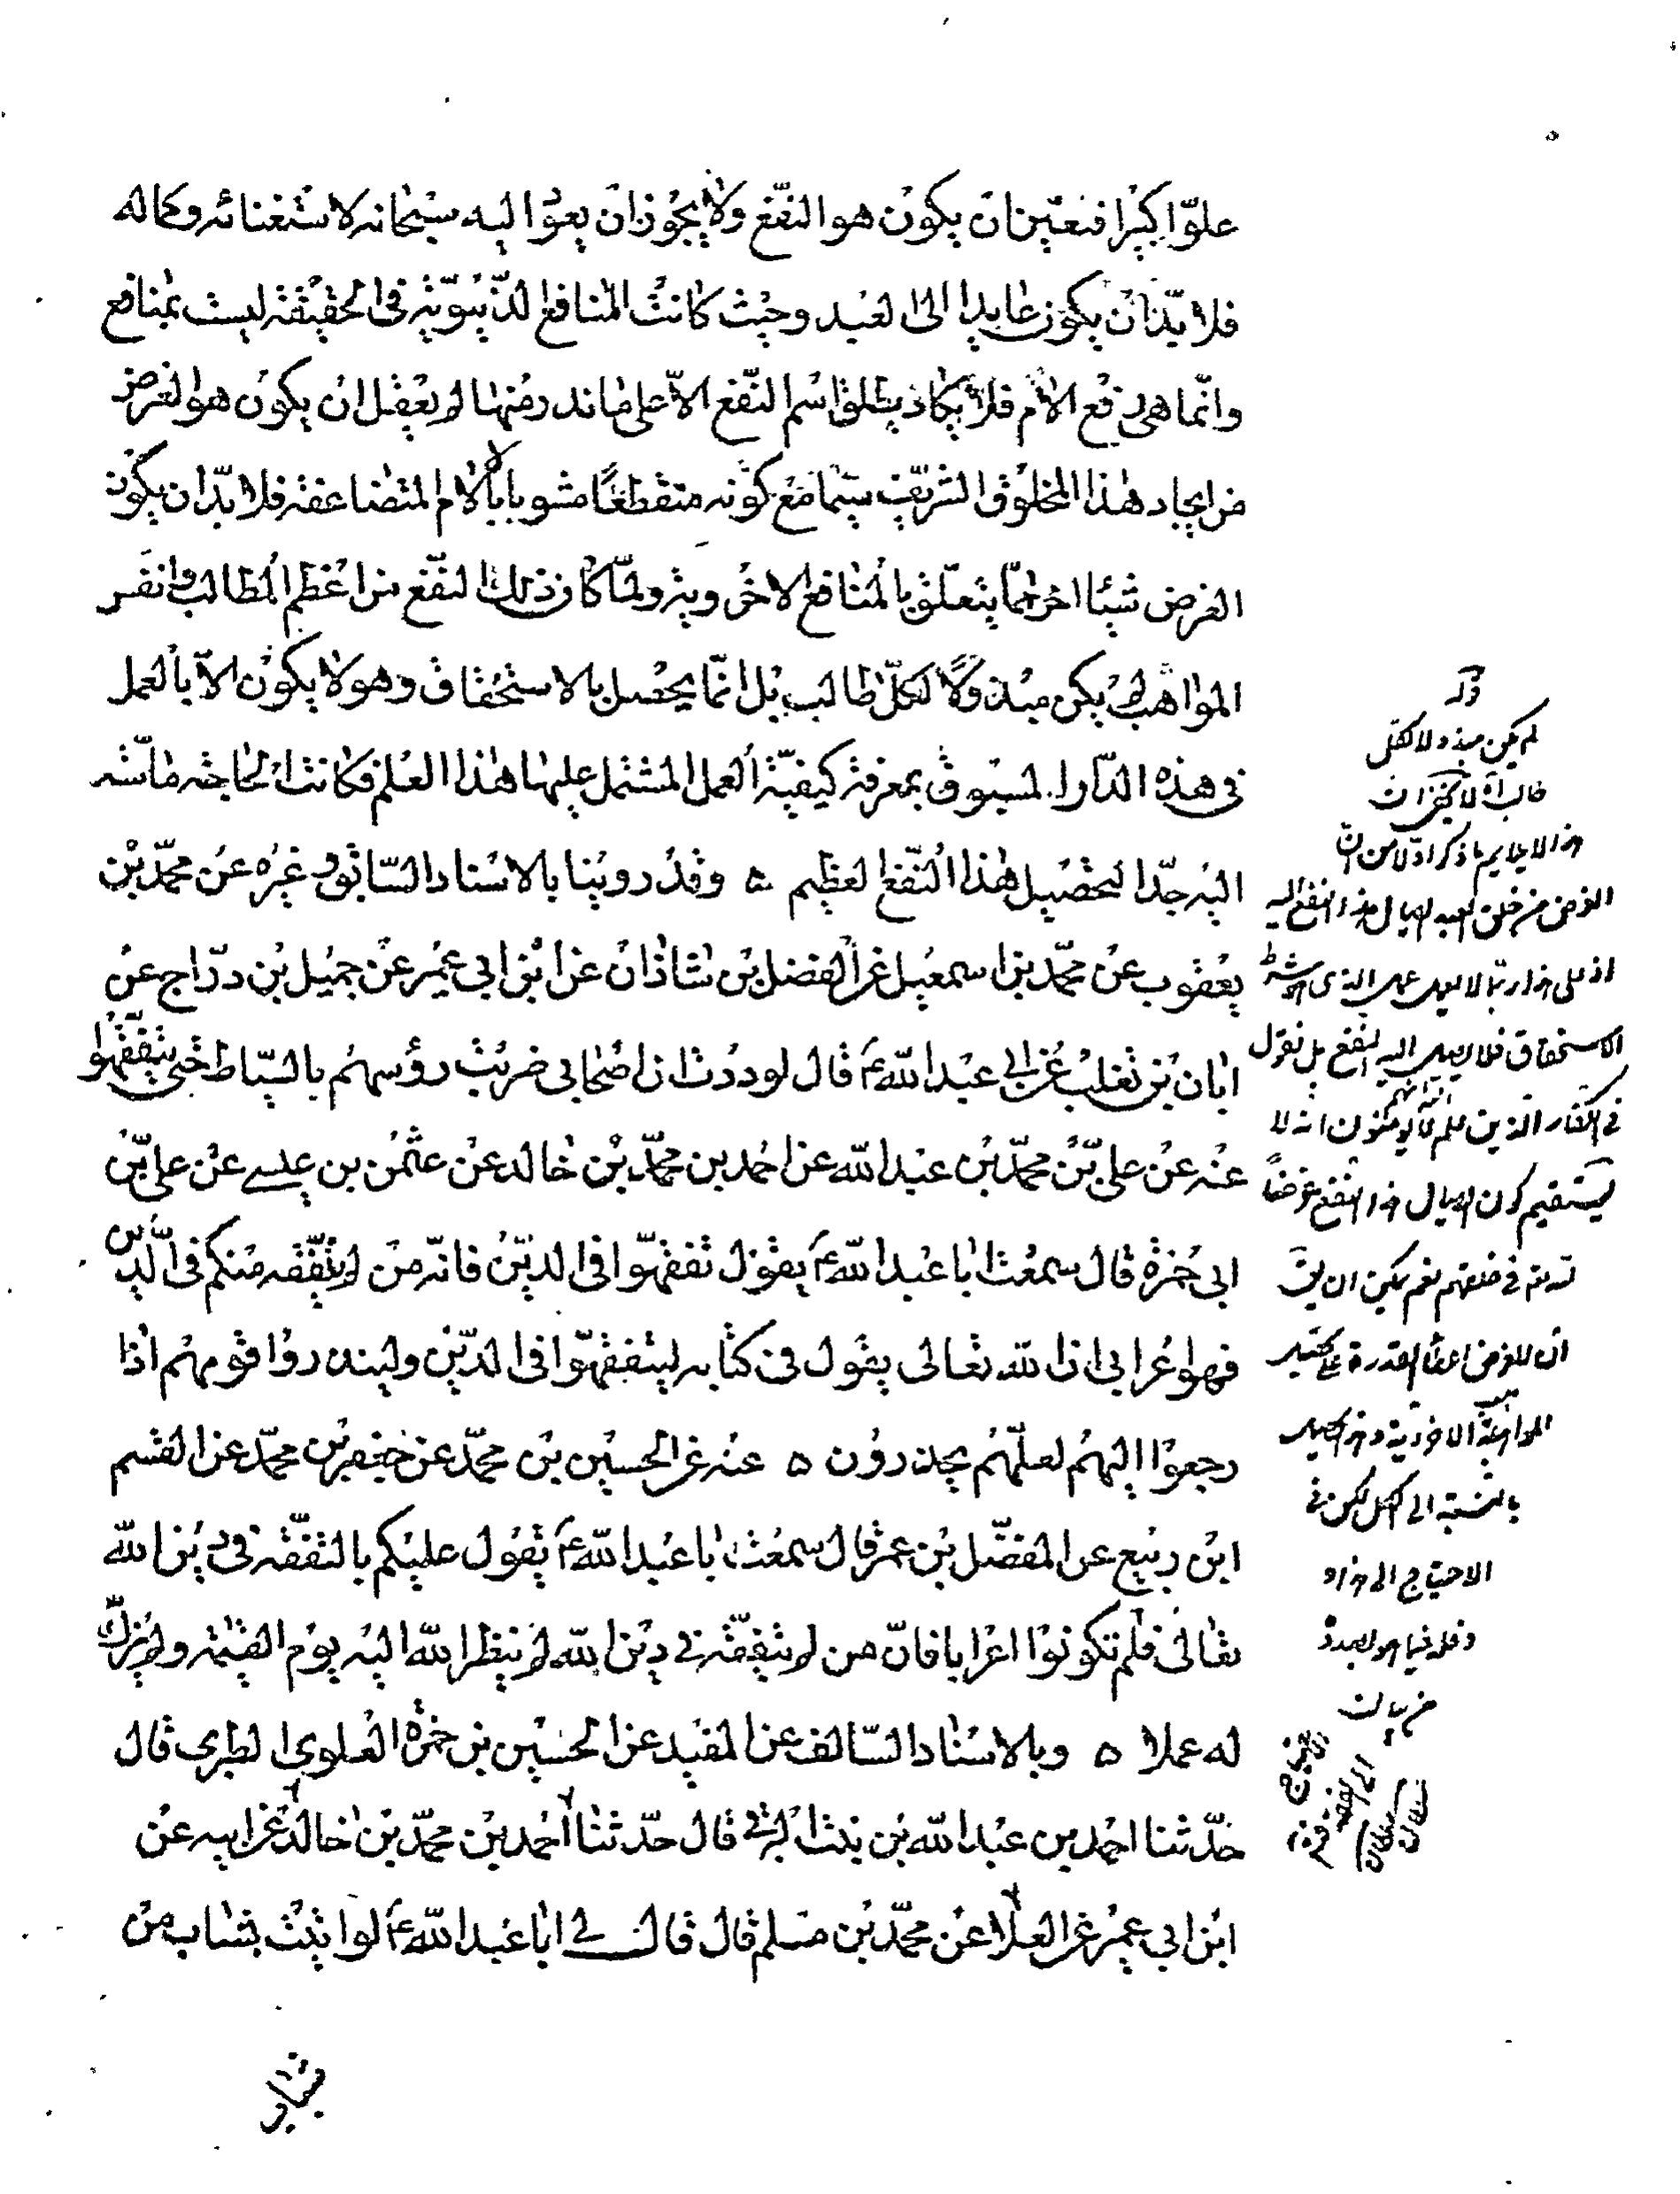 علوّا كبيرا فتعيّن ان يكون هو النفع ولا يجوز ان يعود اليه سبحانه لاستغنائه وكماله
فلا بدّ ان يكون عايدا الى العبد وحيث كانت المنافع الدّنيويّة في الحقيقة ليست بمنافع
وانّما هى دفع الالام فلا يكاد يطلق اسم النّفع الاّ على ما ندر منها لم يعقل ان يكون هو الغرض
من ايجاد هذا المخلوق الشريف سيّما مع كونه منقطعًا مشوبا بالالام المتضاعفة فلا بدّ ان يكون
الغرض شيئا اخر ممّا يتعلّق بالمنافع الاخرويّة ولمّا كان ذلك النفع من اعظم المطالب وانفس
المواهب لم يكن مبذولاً لكلّ طالب بل انّما يحصل بالاستحقاق وهو لا يكون الاّ بالعمل
في هذه الدّار المسبوق بمعرفة كيفيّة العمل المشتمل عليها هذا العلم فكانت الحاجة ماسّة
اليه جدّا لتحصيل هذا النّفع العظيم ۵ وقد روينا بالاسناد السّابق وغيره عن محمّد بن
يعقوب عن محمّد بن اسمعيل عن الفضل بن شاذان عن ابن ابي عمير عن جميل بن درّاج عن
ابان بن تغلب عن ابي عبد الله ع قال لوددت ان اصحابي ضربت رؤسهم بالسّياط حتى يتفقّهوا
عنه عن علي بن محمّد بن عبد الله عن احمد بن محمّد بن خالد عن عثمن بن عيسى عن علي بن
ابي حمزة قال سمعت ابا عبد الله ع يقول تفقهوّا في الدين فانّه من لم يتفقّه منكم في الدّين
فهو اعرابي ان الله تعالى يقول في كتابه ليتفقهّوا في الدّين ولينذروا قومهم اذا
رجعوا اليهم لعلّهم يحذرون ۵ عنه عن الحسين بن محمّد عن جعفر بن محمّد عن القسم
ابن ربيع عن المفضّل بن عمر قال سمعت ابا عبد الله ع يقول عليكم بالتفقّه في دين الله
تعالى فلم تكونوا اعرابا فانّ من لم يتفقّه في دين الله لم ينظر الله اليه يوم القيمة ولم يزكّ
له عملا ۵ وبالاسناد السّالف عن المفيد عن الحسين بن حمزة العلوي الطبري قال
حدّثنا احمد بن عبد الله بن بنت البرقي قال حدّثنا احمد بن محمّد بن خالد عن ابيه عن
ابن ابي عمير عن العلا عن محمّد بن مسلم قال قال لي ابا عبد الله ع لو اتيت بشاب من
قوله
لم يكن مبذولا لكل
طالب اه لا يخفى ان
هذا لا يلايم ما ذكر اولا من ان
الغرض من خلق العبد ايصال هذا النفع اليه
اذ على هذا ربّما لا يعمل عمله الذي هو شرط
الاستحقاق فلا يصل اليه النفع بل نقول
في الكفار الذين علم الله انهم لا يؤمنون انه لا
يستقيم كون ايصال هذا النفع غرضاً
له تعالى في خلقهم نعم يمكن ان يق
ان الغرض اعطاء القدرة على تحصيل
المواهب الاخروية وهو حاصل
بالنسبة الى الكل لكن في
الاحتياج الى هذا